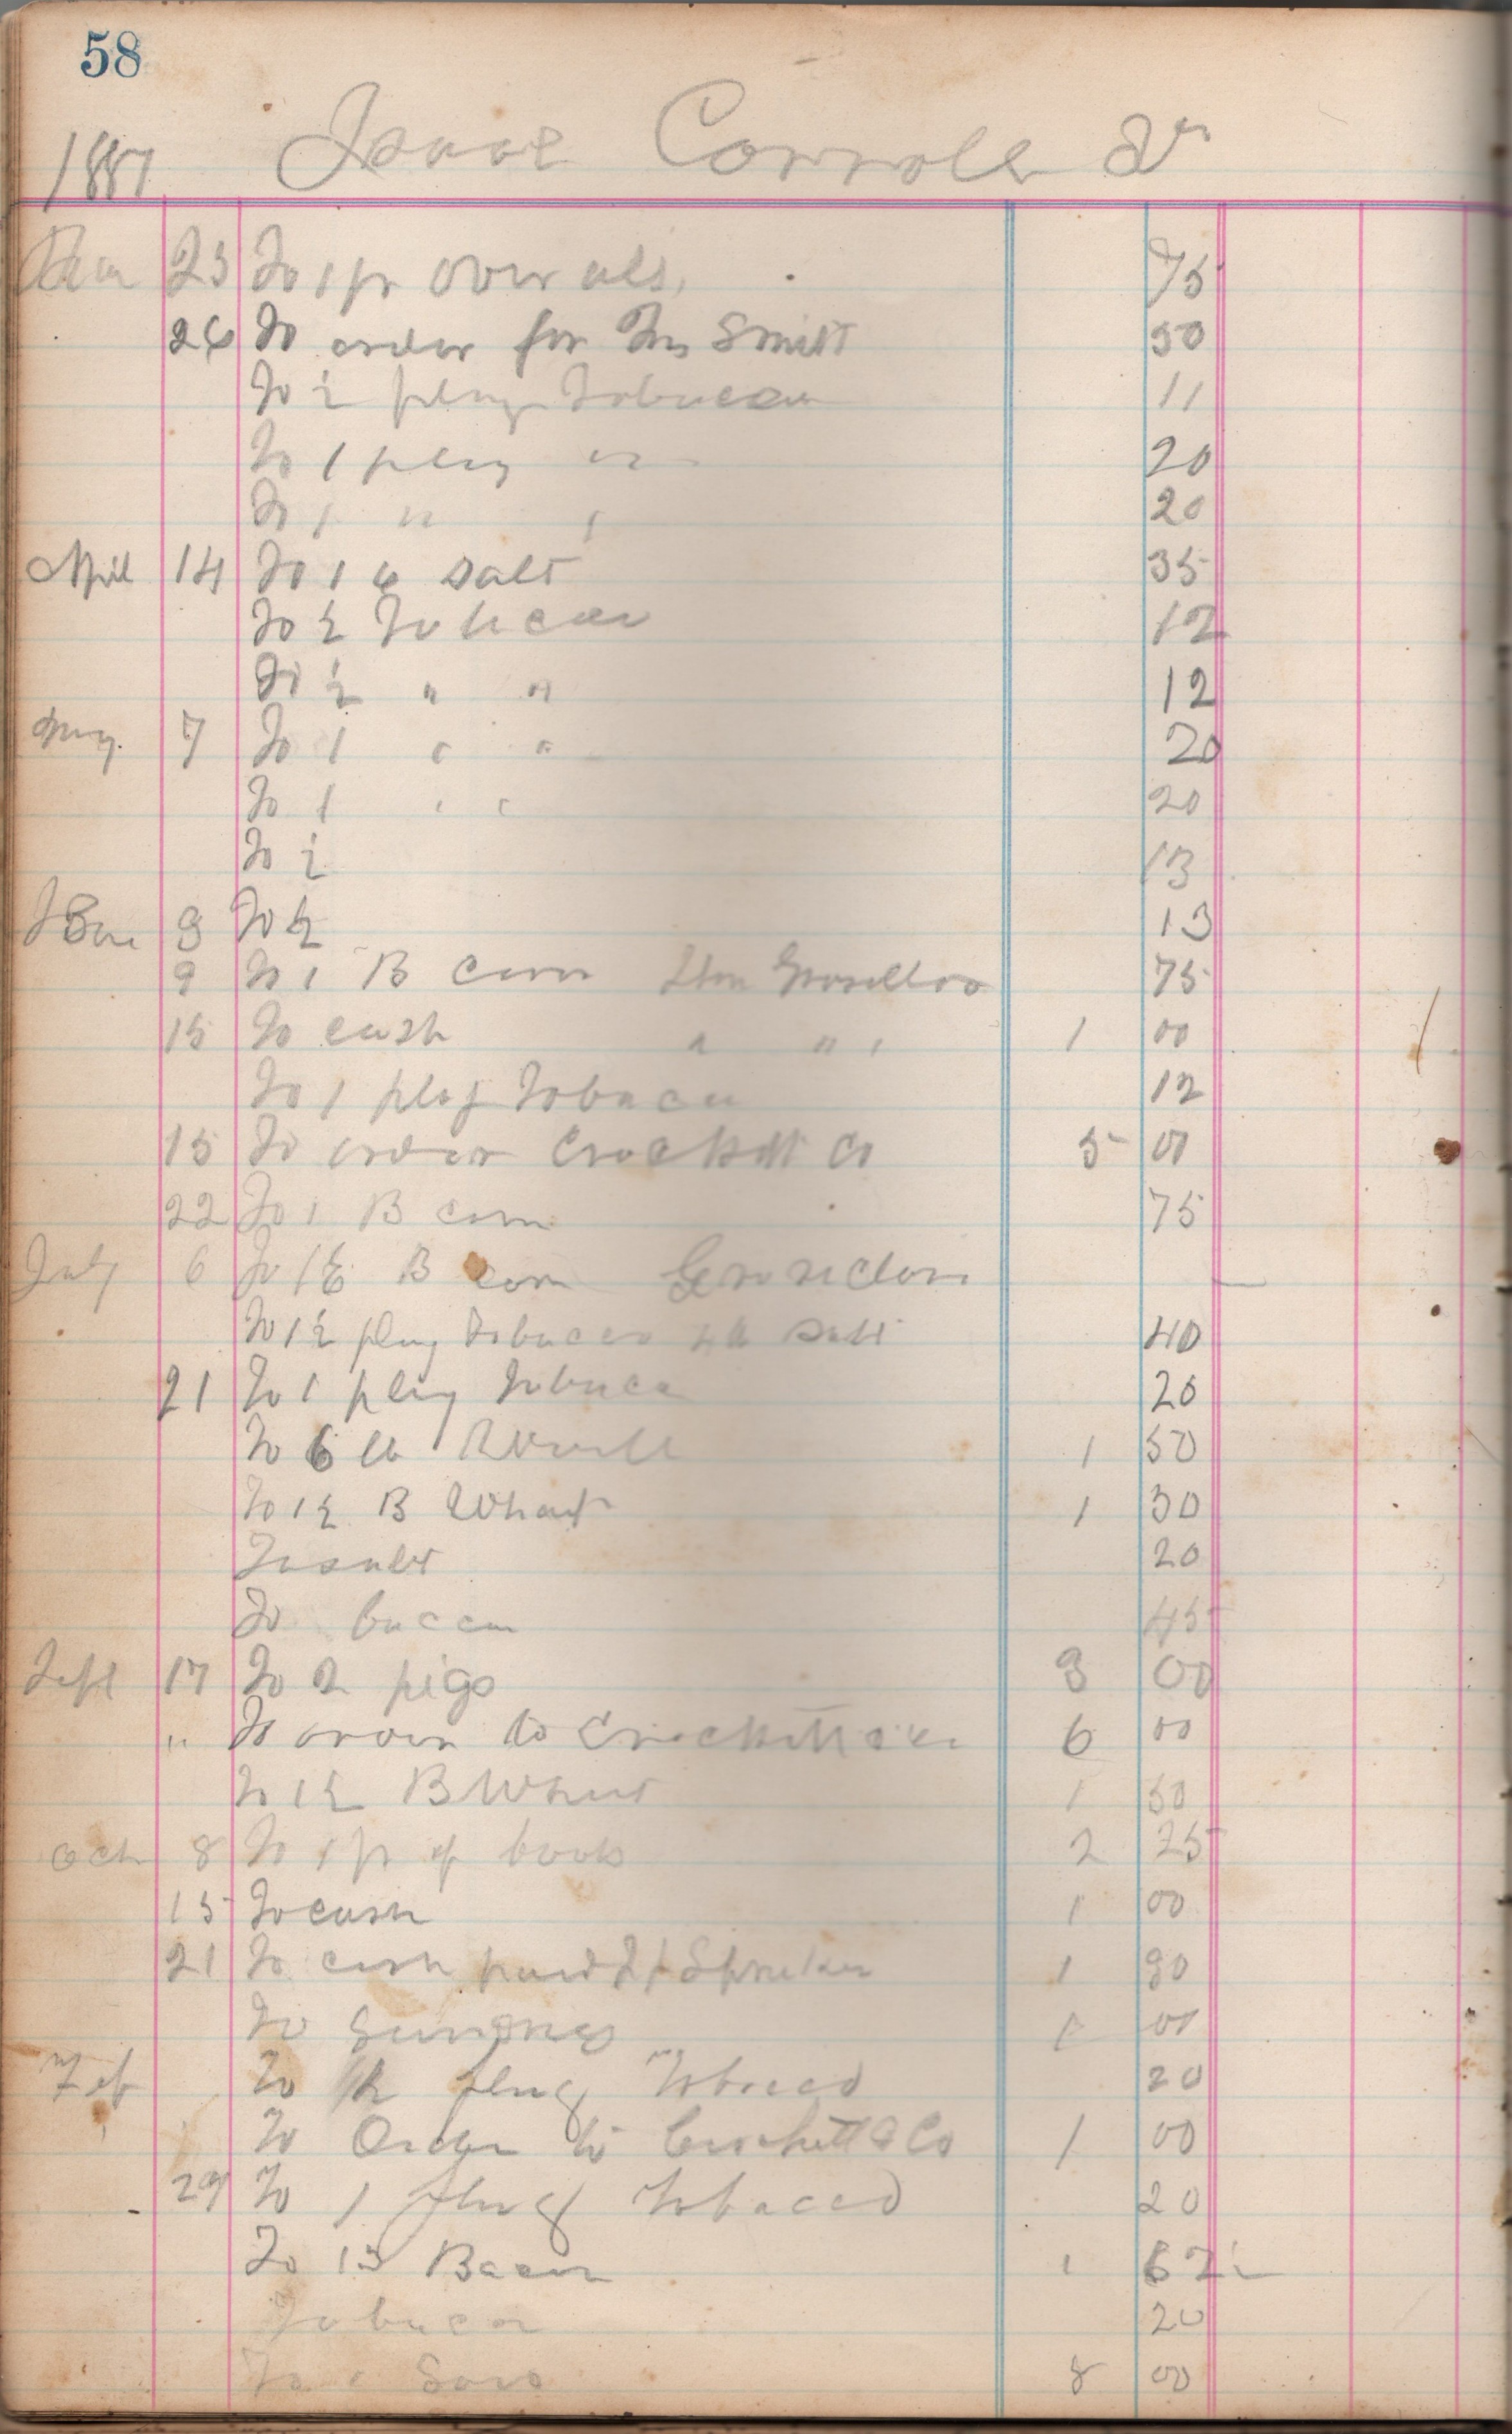 58
1887 Isaac Dr
23 To 1 pr Over alls 75
26 To order for Smitt 50
To ½ plug Tobacco 11
To 1 plug " 20
To 1 " " 20
April 14 To 1 G Salt 35
To ½ Tobacco 12
To ½ " " 12
May 7 To 1 " " 20
To 1 " " 20
To ½ 13
9 To ½ 13
9 To 1 B Corn 75
15 To cash " " " 1 00
To 1 plug Tobacco 12
15 To order Crockett Co 5 00
22 To 1 B corn 75
July 6 To 1½ B corn
To 1½ plug Tobacco Salt 40
21 To 1 plug Tobacco 20
To 6 lb 1 50
To 1½ B Wheat 1 30
To salt 20
To baccon 45
Sept 17 To 2 pigs 3 00
" To order to Crockett & Co 6 00
To 1½ B Wheat 1 50
Oct 8 To 1 pr of boots 2 25
15 To cash 1 00
21 To cash paid 1 90
To Sundries 1 00
Feb To plug Tobacco 20
To Order to Crockett & Co 1 00
29 To 1 plug Tobacco 20
To 13 Bacon 1 62½
Tobacco 20
To 1 8 00